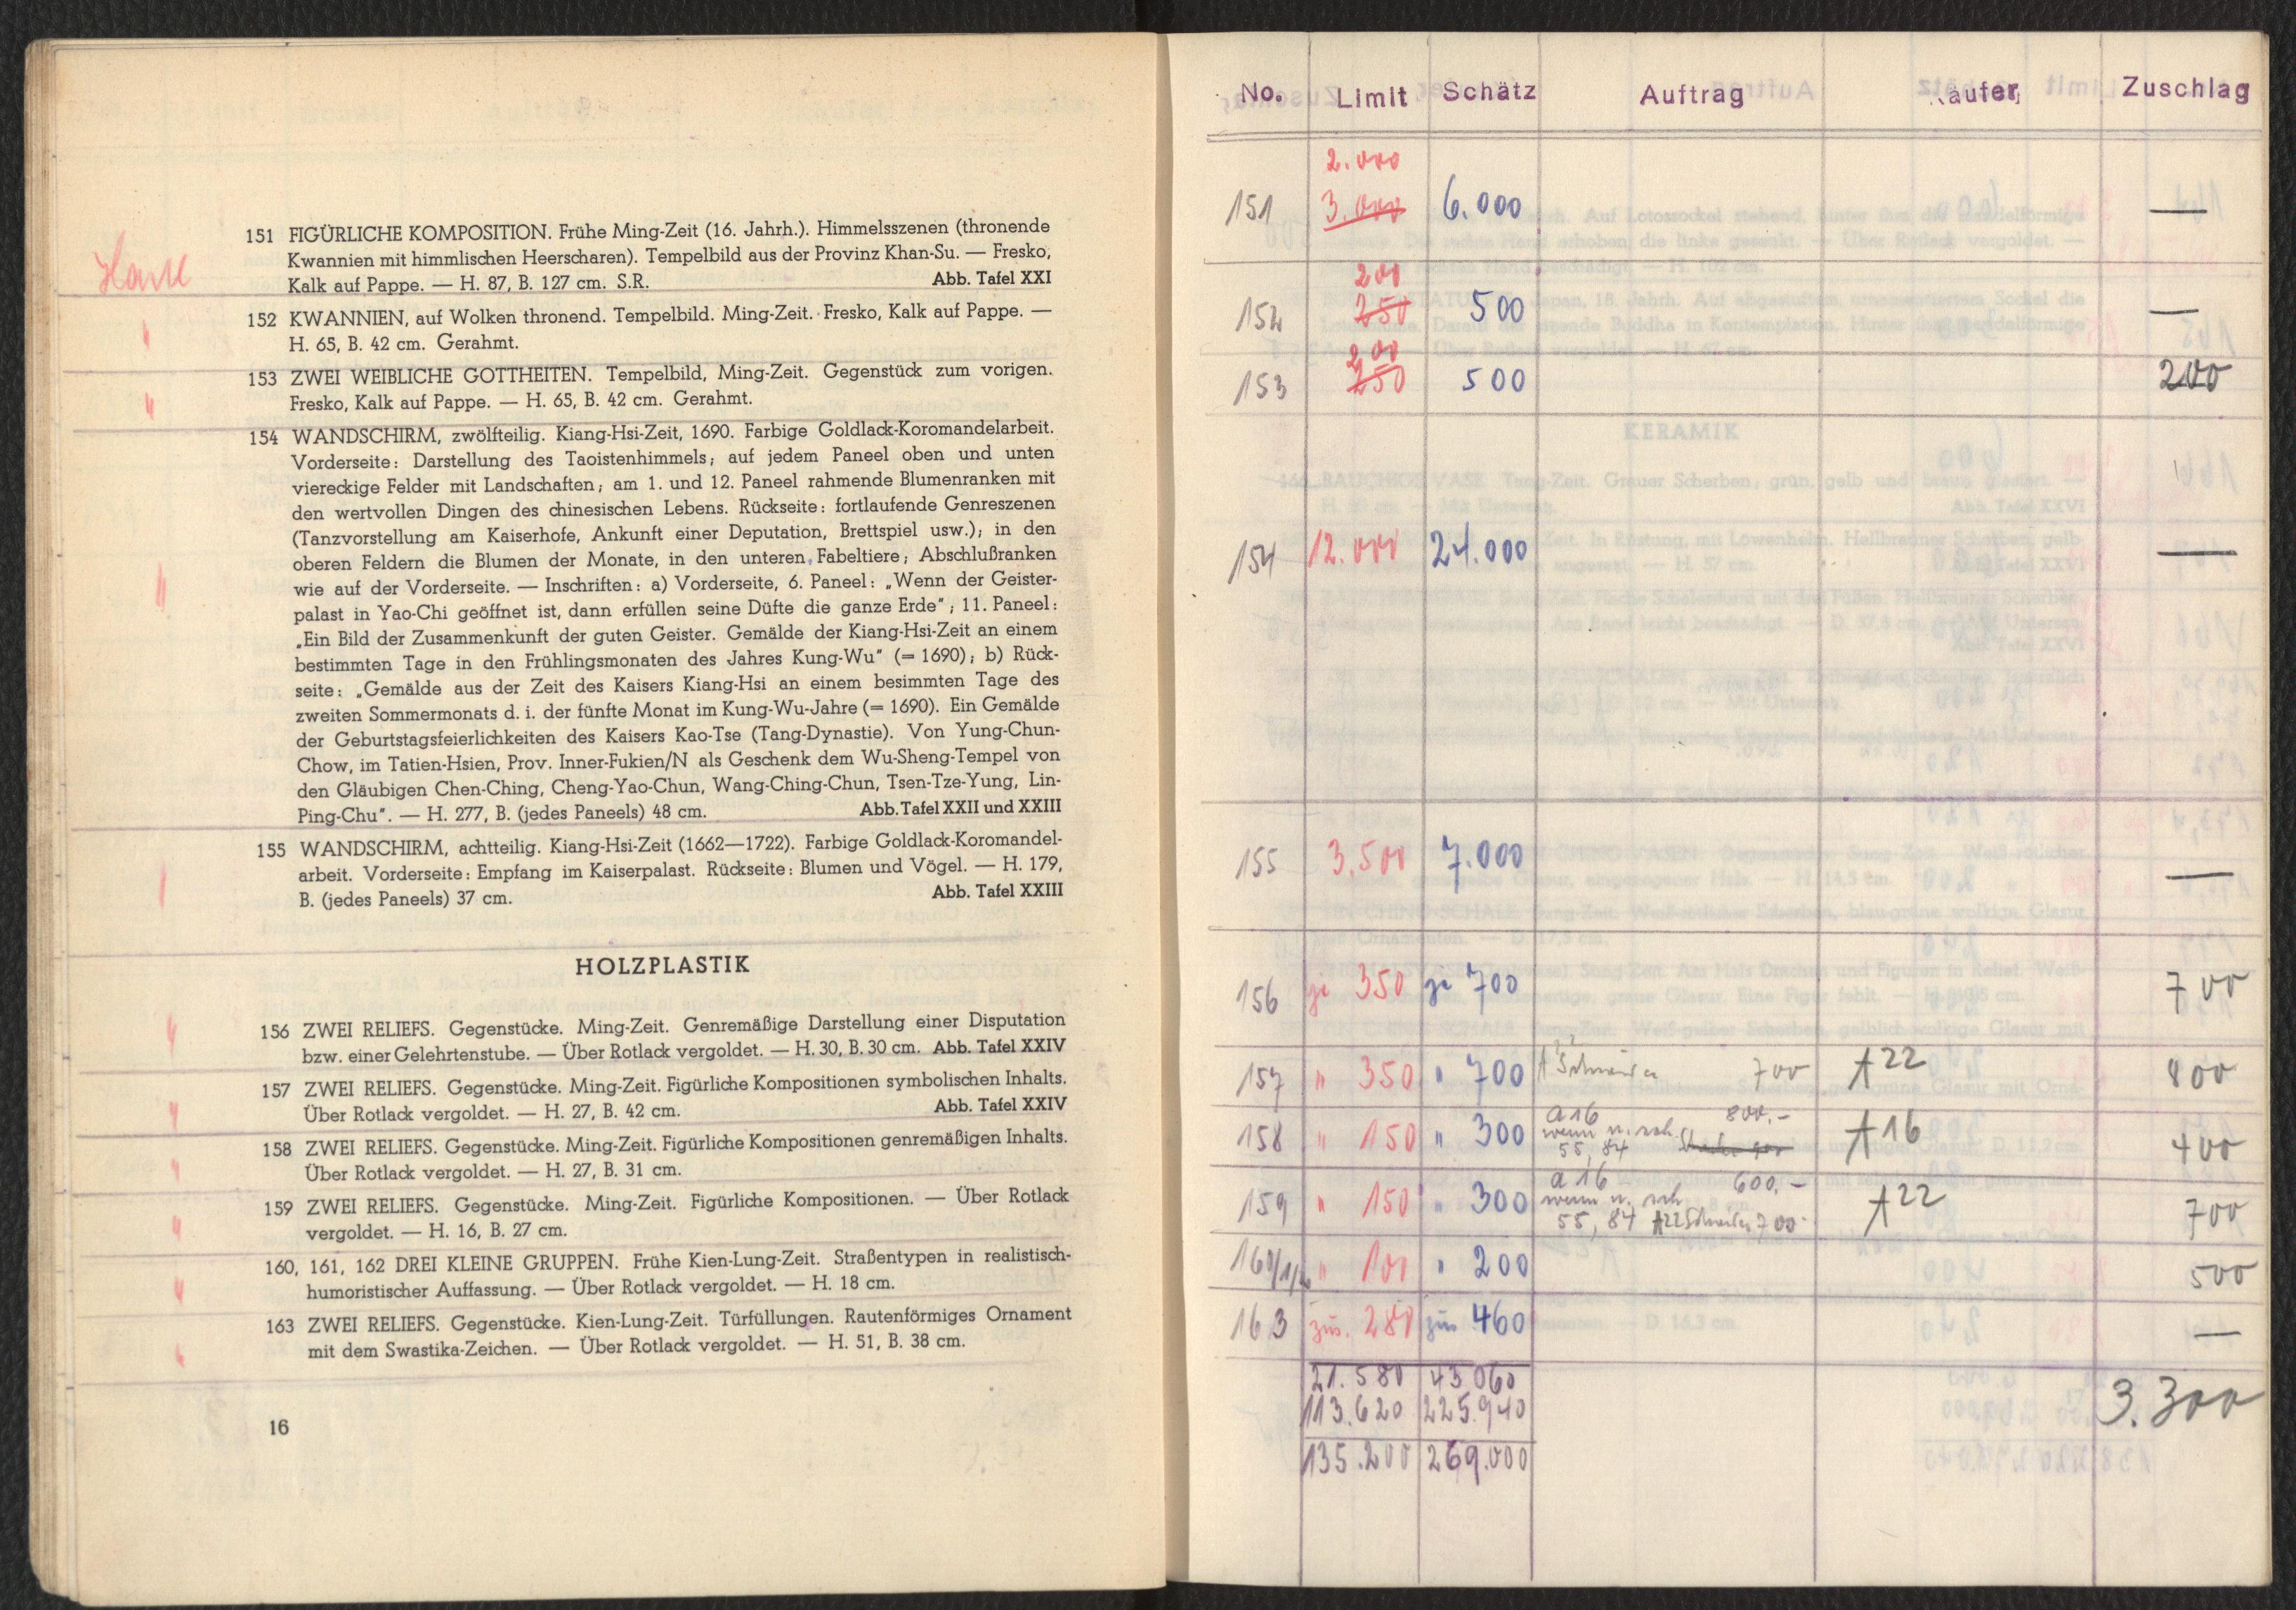 151 FIGÜRLICHE KOMPOSITION. Frühe Ming-Zeit (16. Jahrh.). Himmelsszenen (thronende
Kwannien mit himmlischen Heerscharen). Tempelbild aus der Provinz Khan-Su. — Fresko,
Kalk auf Pappe. — H. 87, B. 127 cm. S.R. Abb. Tafel XXI
152 KWANNIEN, auf Wolken thronend. Tempelbild. Ming-Zeit. Fresko, Kalk auf Pappe. —
H. 65, B. 42 cm. Gerahmt.
153 ZWEI WEIBLICHE GOTTHEITEN. Tempelbild, Ming-Zeit. Gegenstück zum vorigen.
Fresko, Kalk auf Pappe. — H. 65, B. 42 cm. Gerahmt.
154 WANDSCHIRM, zwölfteilig. Kiang-Hsi-Zeit, 1690. Farbige Goldlack-Koromandelarbeit.
Vorderseite: Darstellung des Taoistenhimmels; auf jedem Paneel oben und unten
viereckige Felder mit Landschaften; am 1. und 12. Paneel rahmende Blumenranken mit
den wertvollen Dingen des chinesischen Lebens. Rückseite: fortlaufende Genreszenen
(Tanzvorstellung am Kaiserhofe, Ankunft einer Deputation, Brettspiel usw.); in den
oberen Feldern die Blumen der Monate, in den unteren Fabeltiere; Abschlußranken
wie auf der Vorderseite. — Inschriften: a) Vorderseite, 6. Paneel: „Wenn der Geister-
palast in Yao-Chi geöffnet ist, dann erfüllen seine Düfte die ganze Erde"; 11. Paneel:
„Ein Bild der Zusammenkunft der guten Geister. Gemälde der Kiang-Hsi-Zeit an einem
bestimmten Tage in den Frühlingsmonaten des Jahres Kung-Wu" (= 1690); b) Rück-
seite: „Gemälde aus der Zeit des Kaisers Kiang-Hsi an einem besimmten Tage des
zweiten Sommermonats d. i. der fünfte Monat im Kung-Wu-Jahre (= 1690). Ein Gemälde
der Geburtstagsfeierlichkeiten des Kaisers Kao-Tse (Tang-Dynastie). Von Yung-Chun-
Chow, im Tatien-Hsien, Prov. Inner-Fukien/N als Geschenk dem Wu-Sheng-Tempel von
den Gläubigen Chen-Ching, Cheng-Yao-Chun, Wang-Ching-Chun, Tsen-Tze-Yung, Lin-
Ping-Chu". — H. 277, B. (jedes Paneels) 48 cm. Abb. Tafel XXII und XXIII
155 WANDSCHIRM, achtteilig. Kiang-Hsi-Zeit (1662—1722). Farbige Goldlack-Koromandel-
arbeit. Vorderseite: Empfang im Kaiserpalast. Rückseite: Blumen und Vögel. — H. 179,
B. (jedes Paneels) 37 cm. Abb. Tafel XXIII
HOLZPLASTIK
156 ZWEI RELIEFS. Gegenstücke. Ming-Zeit. Genremäßige Darstellung einer Disputation
bzw. einer Gelehrtenstube. — Über Rotlack vergoldet. — H. 30, B. 30 cm. Abb. Tafel XXIV
157 ZWEI RELIEFS. Gegenstücke. Ming-Zeit. Figürliche Kompositionen symbolischen Inhalts.
Über Rotlack vergoldet. — H. 27, B. 42 cm. Abb. Tafel XXIV
158 ZWEI RELIEFS. Gegenstücke. Ming-Zeit. Figürliche Kompositionen genremäßigen Inhalts.
Über Rotlack vergoldet. — H. 27, B. 31 cm.
159 ZWEI RELIEFS. Gegenstücke. Ming-Zeit. Figürliche Kompositionen. — Über Rotlack
vergoldet. — H. 16, B. 27 cm.
160, 161, 162 DREI KLEINE GRUPPEN. Frühe Kien-Lung-Zeit. Straßentypen in realistisch-
humoristischer Auffassung. — Über Rotlack vergoldet. — H. 18 cm.
163 ZWEI RELIEFS. Gegenstücke. Kien-Lung-Zeit. Türfüllungen. Rautenförmiges Ornament
mit dem Swastika-Zeichen. — Über Rotlack vergoldet. — H. 51, B. 38 cm.
16
No. Limit Schätz Auftrag Käufer Zuschlag
2.000
151 3.000 6.000 —
200
152 250 500 —
200
153 250 500 200
154 12.000 24.000 —
155 3.500 7.000 —
156 je 350 je 700 700
157 " 350 " 700 700 A22 800
158 " 150 " 300 A16 800.- A16 400
55, 84
159 " 150 " 300 A16 600.- A22 700
55, 84 A22 700
160/1/2 " 100 " 200 500
163 zus. 280 zus 460 —
21.580 43.060
113.620 225.940 3.300
135.200 269.000